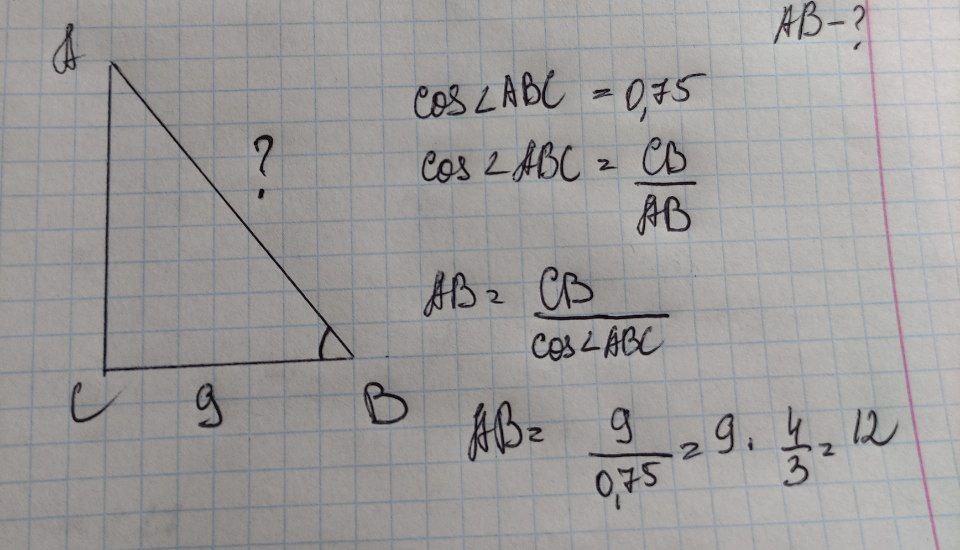 AB-?
A
?
C
9
B
cos∠ABC = 0,75
cos∠ABC = CB/AB
AB = CB/cos∠ABC
AB = 9/0,75 = 9 · 4/3 = 12